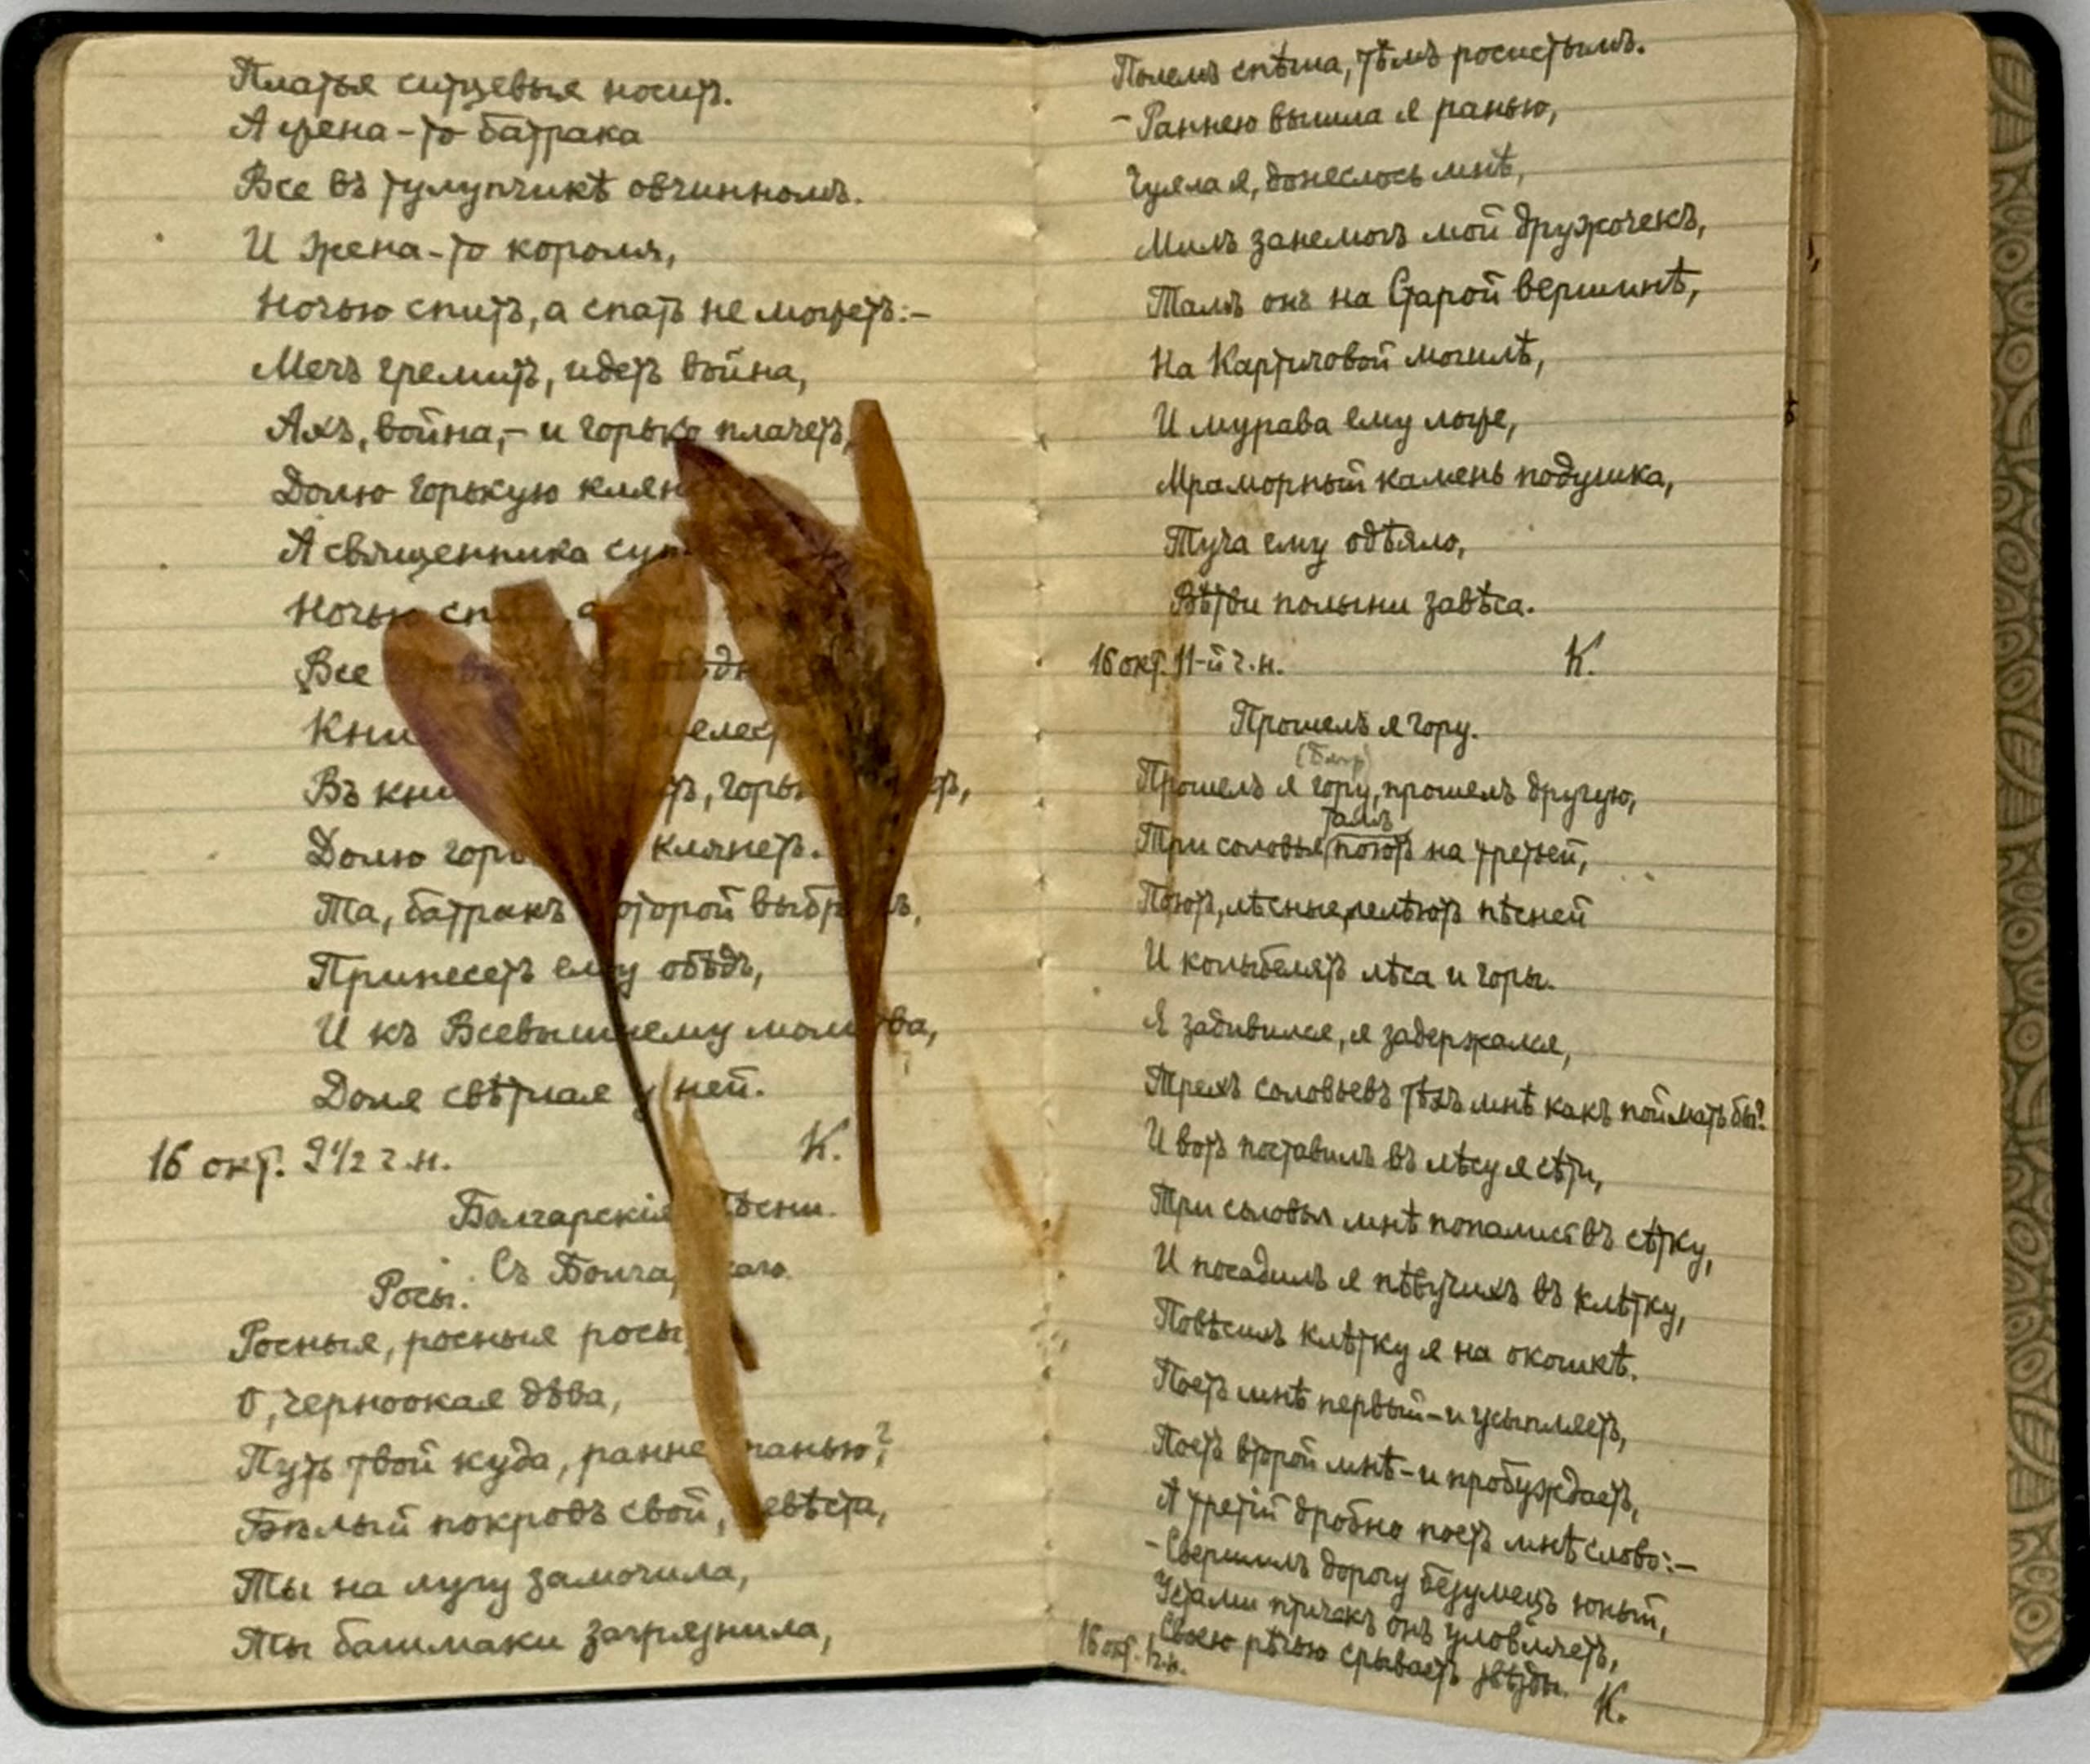 Платья ситцевыя носитъ.
А жена-то батрака
Все въ тулупчикѣ овчинномъ.
И жена-то короля,
Ночью спитъ, а спать не можетъ:-
Мечъ гремитъ, идетъ война,
Ахъ, война,- и горько плачетъ,
Долю горькую
А священника
Ночью
Все
Въ
Долю клянетъ.
Та, батракъ которой выбранъ,
Принесетъ ему обѣдъ,
И къ Всевышнему молитва,
Доля свѣтлая у ней.
16 окт. 9 1/2 ч.н. К.
Болгарскія Пѣсни.
Съ Болгарскаго.
Росы.
Росныя, росныя росы
О, черноокая дѣва,
Путь твой куда, раннею ранью?
Бѣлый покровъ свой, невѣста,
Ты на лугу замочила,
Ты башмаки загрязнила,
Полемъ спѣша, тѣмъ росистымъ.
- Раннею вышла я ранью,
Гуляла я, донеслось мнѣ,
Милъ занемогъ мой дружочекъ,
Тамъ онъ на Старой вершинѣ,
На Картиловой могилѣ,
И мурава ему ложе,
Мраморный камень подушка,
Туча ему одѣяло,
Вѣтви полыни завѣса.
16 окт. 11-й ч.н. К.
Прошелъ я гору.
Прошелъ я гору, прошелъ другую,
тамъ
Три соловья поютъ на третьей,
Поютъ, лѣсные, лелѣютъ пѣсней
И колыбелятъ лѣса и горы.
Я задивился, я задержался,
Трехъ соловьевъ тѣхъ мнѣ какъ поймать бы?
И вотъ поставилъ въ лѣсу я сѣти,
Три соловья мнѣ попались въ сѣтку,
И посадилъ я пѣвучихъ въ клѣтку,
Повѣсилъ клѣтку я на окошкѣ.
Поетъ мнѣ первый - и усыпляетъ,
Поетъ второй мнѣ - и пробуждаетъ,
А третій дробно поетъ мнѣ слово:-
- Свершилъ дорогу безумецъ юный,
Устами птичекъ онъ уловляетъ,
Своею рѣчью срываетъ звѣзды.
16 окт. ч.н. К.